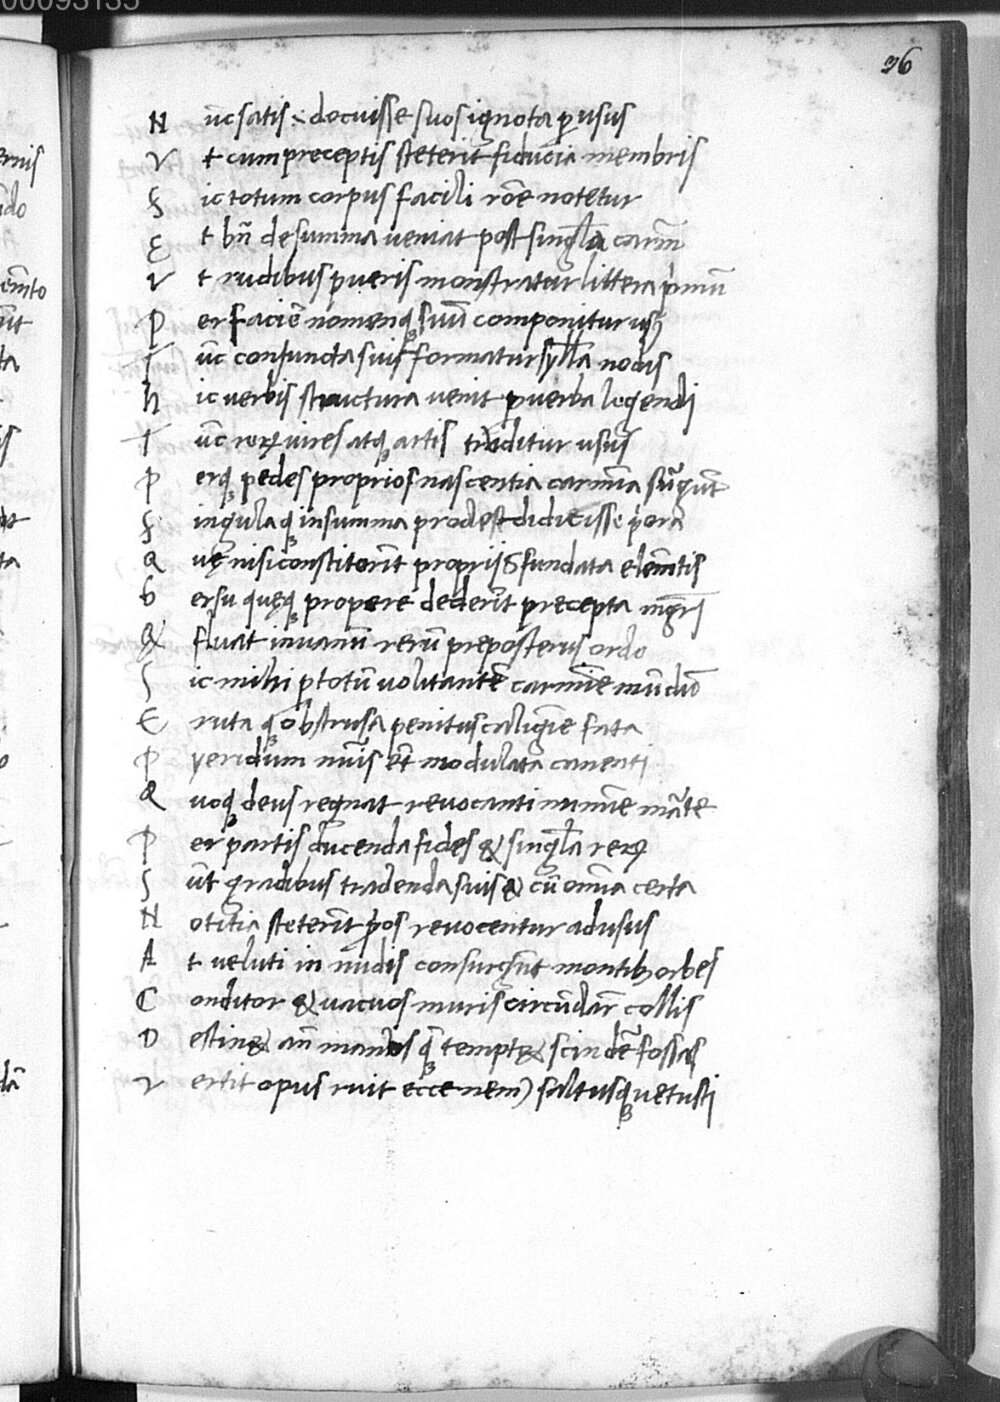 00093135
36
N uc satis ÷ docuisse suos ignota p usus
V t cum preceptis steterit fiducia membris
S ic totum corpus facili rōne notetur
Ę t bn̄ de summa veniat post singula carm̄
V t rudibus pueris monstratur littera primū
P er faciē nomenq suū componitur usq
T ūc coniuncta suis formatur sylla nodis
h ic verbis structura venit p verba legendi
T ūc rerū vires atq artis traditur usus
P erq pedes proprios nascentia carmīa surgūt
S ingula q in summa prodest didicisse priora
Q uę nisi constiterīt propriis fundata elemētis
V ersu quęq propere dederīt precepta magrī
Q fluat in vanū rerū preposterus ordo
S ic mihi p totū volitantē carmīe mūdū
E ruta q obstrusa penitus caligīe fata
P yeridum numīs etī modulata canenti
Q uoq deus regnat revocanti numīe mārte
P er partis ducenda fides & singula rerū
S ūt gradibus tradenda suis & cū omīa certa
N otitia steterīt p̄os revocentur ad usus
A t veluti in nudis consurgūt montib orbes
C onditor & vacuos muris circūdar̄ collis
D estinat an̄ manus q̄ temptet scindē fossas
V ertit opus ruit ecce nem) saltusq vetusti